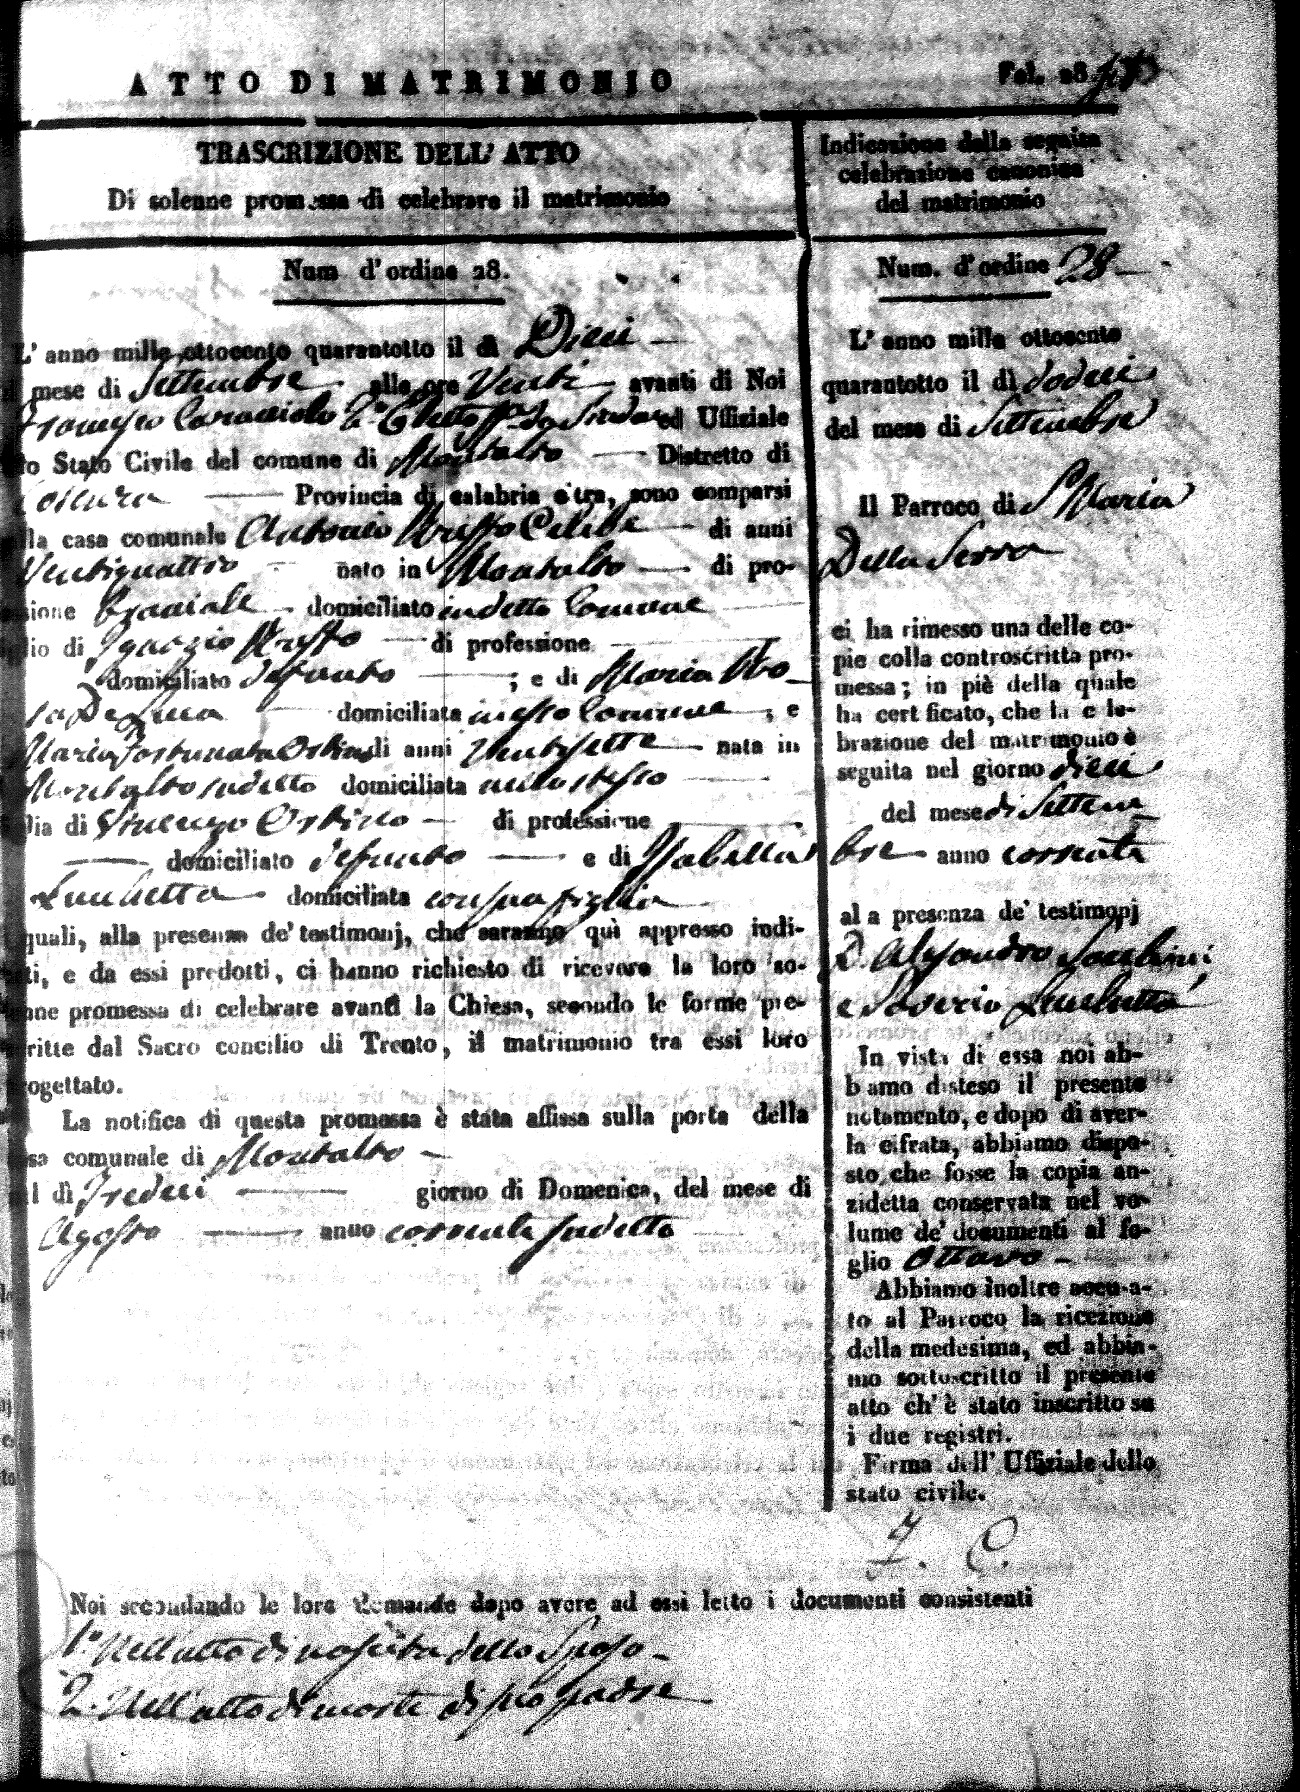 ATTO DI MATRIMONIO
Fol. 28
TRASCRIZIONE DELL' ATTO
Di solenne promessa di celebrare il matrimonio
Num d'ordine 28.
L' anno mille ottocento quarantotto il di Dieci
mese di Settembre alle ore Venti avanti di Noi
Caracciolo 2° Eletto ed Uffiziale
Stato Civile del comune di Montalto Distretto di
Cosenza Provincia di calabria citra, sono comparsi
lla casa comunale Antonio Celibe di anni
Ventiquattro nato in Montalto di pro-
sione domiciliato in detto Comune
lio di Ignazio di professione
domiciliato defunto ; e di Maria
De Luca domiciliata in esso Comune ; e
Maria Fortunata di anni Ventisette nata in
Montalto sudetto domiciliata nello stesso
lia di Vincenzo di professione
domiciliato defunto e di Isabella
domiciliata con sua figlia
quali, alla presenza de' testimonj, che saranno quì appresso indi-
ti, e da essi predotti, ci hanno richiesto di ricevere la loro so-
nne promessa di celebrare avanti la Chiesa, secondo le forme pre-
ritte dal Sacro concilio di Trento, il matrimonio tra essi loro
ogettato.
La notifica di questa promessa è stata affissa sulla porta della
sa comunale di Montalto
l dì Tredeci giorno di Domenica, del mese di
Agosto anno corrente sudetto
Indicazione della seguita
celebrazione canonica
del matrimonio
Num. d'ordine 28
L' anno mille ottocento
quarantotto il dì dodeci
del mese di Settembre
Il Parroco di S. Maria
Della Serra
ci ha rimesso una delle co-
pie colla controscritta pro-
messa; in piè della quale
ha cert ficato, che la c le-
brazione del matrimonio è
seguita nel giorno dieci
del mese di Settem
bre anno corrente
al a presenza de' testimonj
D. Alessandro
e
In vista di essa noi ab-
b amo disteso il presente
notamento, e dopo di aver-
la cifrata, abbiamo dispo-
sto che fosse la copia an-
zidetta conservata nel vo-
lume de' documenti al fo-
glio Ottavo
Abbiamo inoltre accu-a-
to al Parroco la ricezione
della medesima, ed abbia-
mo sottoscritto il presente
atto ch' è stato inscritto su
i due registri.
Firma dell' Uffiziale dello
stato civile.
Noi secondando le loro demande dopo avere ad essi letto i documenti consistenti
1° Nell'atto di nascita dello Sposo
2. Nell'atto di morte di suo padre